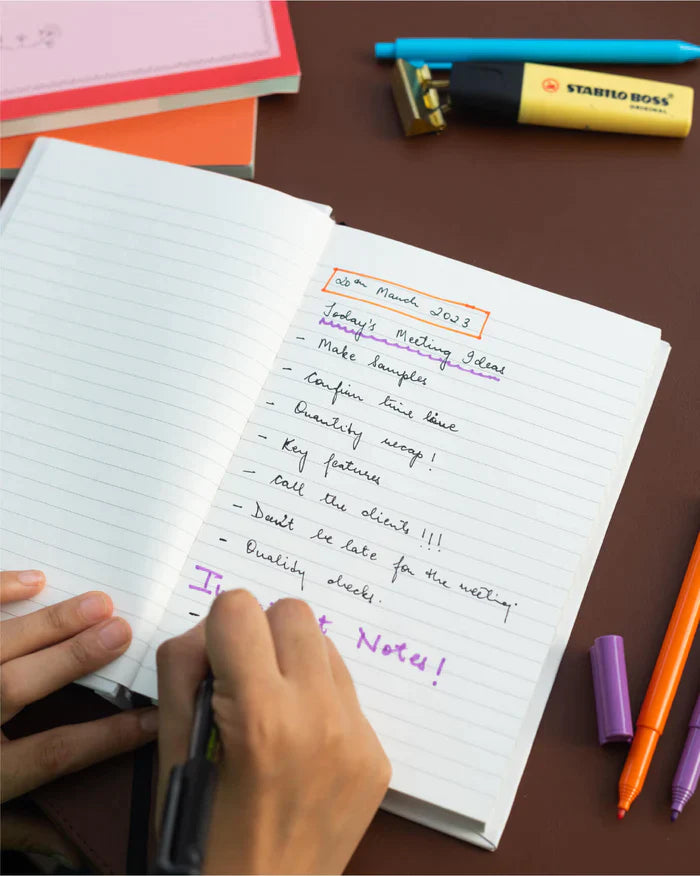 STABILO BOSS
ORIGINAL
20th March 2023
Today's Meeting Ideas
- Make Samples
- Confirm time line
- Quantity recap!
- Key features
- Call the clients !!!
- Don't be late for the meeting.
- Quality checks.
Notes!